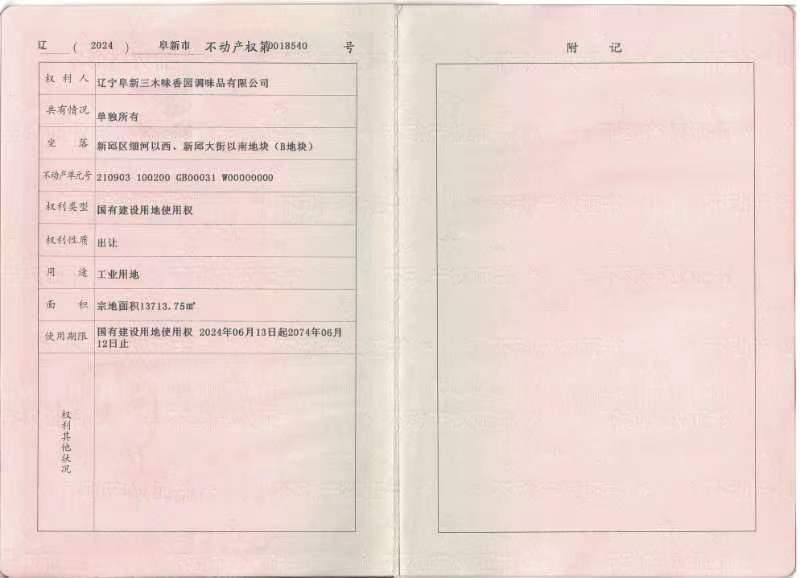 辽 ( 2024 ) 阜新市 不动产权第0018540 号
权利人 辽宁阜新三木味香园调味品有限公司
共有情况 单独所有
坐落 新邱区细河以西、新邱大街以南地块（B地块）
不动产单元号 210903 100200 GB00031 W00000000
权利类型 国有建设用地使用权
权利性质 出让
用途 工业用地
面积 宗地面积13713.75㎡
使用期限 国有建设用地使用权 2024年06月13日起2074年06月
12日止
权利其他状况
附记